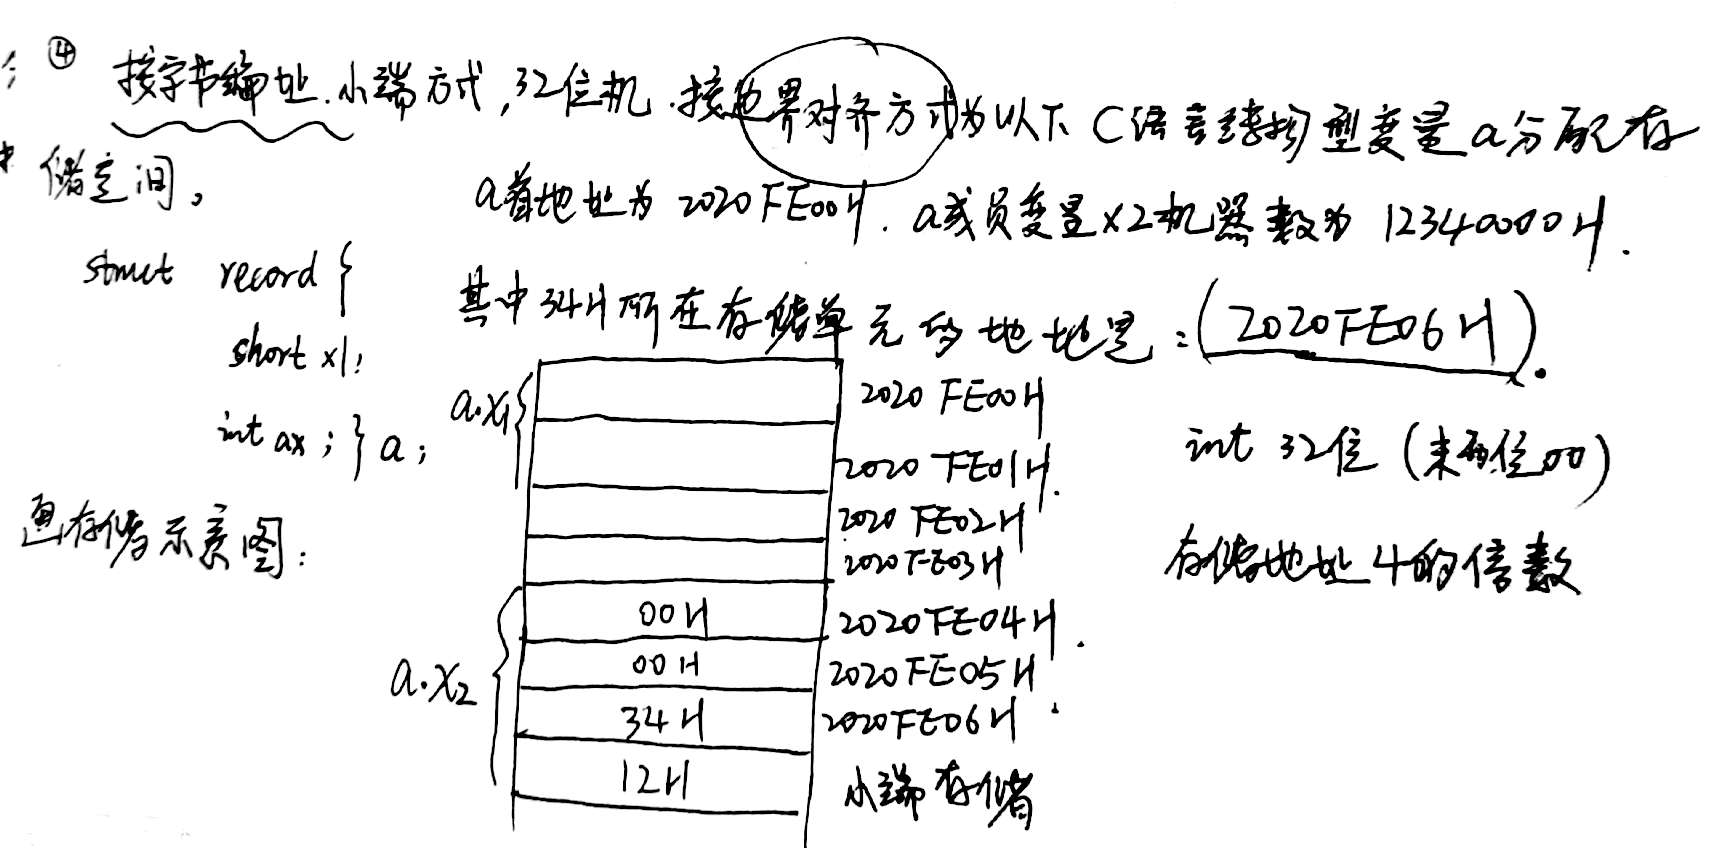 ④ 按字节编址.小端方式,32位机.按边界对齐方式为以下C语言结构型变量a分配存
储空间。
a首地址为 2020FE00H. a成员变量x2机器数为 12340000H.
struct record {
其中34H所在存储单元的地址是:(2020FE06H).
short x1;
int ax; } a;
a.x1
2020 FE00H
2020 FE01H.
2020 FE02H
2020FE03H
int 32位 (末两位00)
存储地址 4的倍数
画存储示意图:
a.x2
00H 2020FE04H.
00H 2020FE05H
34H 2020FE06H.
12H 小端存储